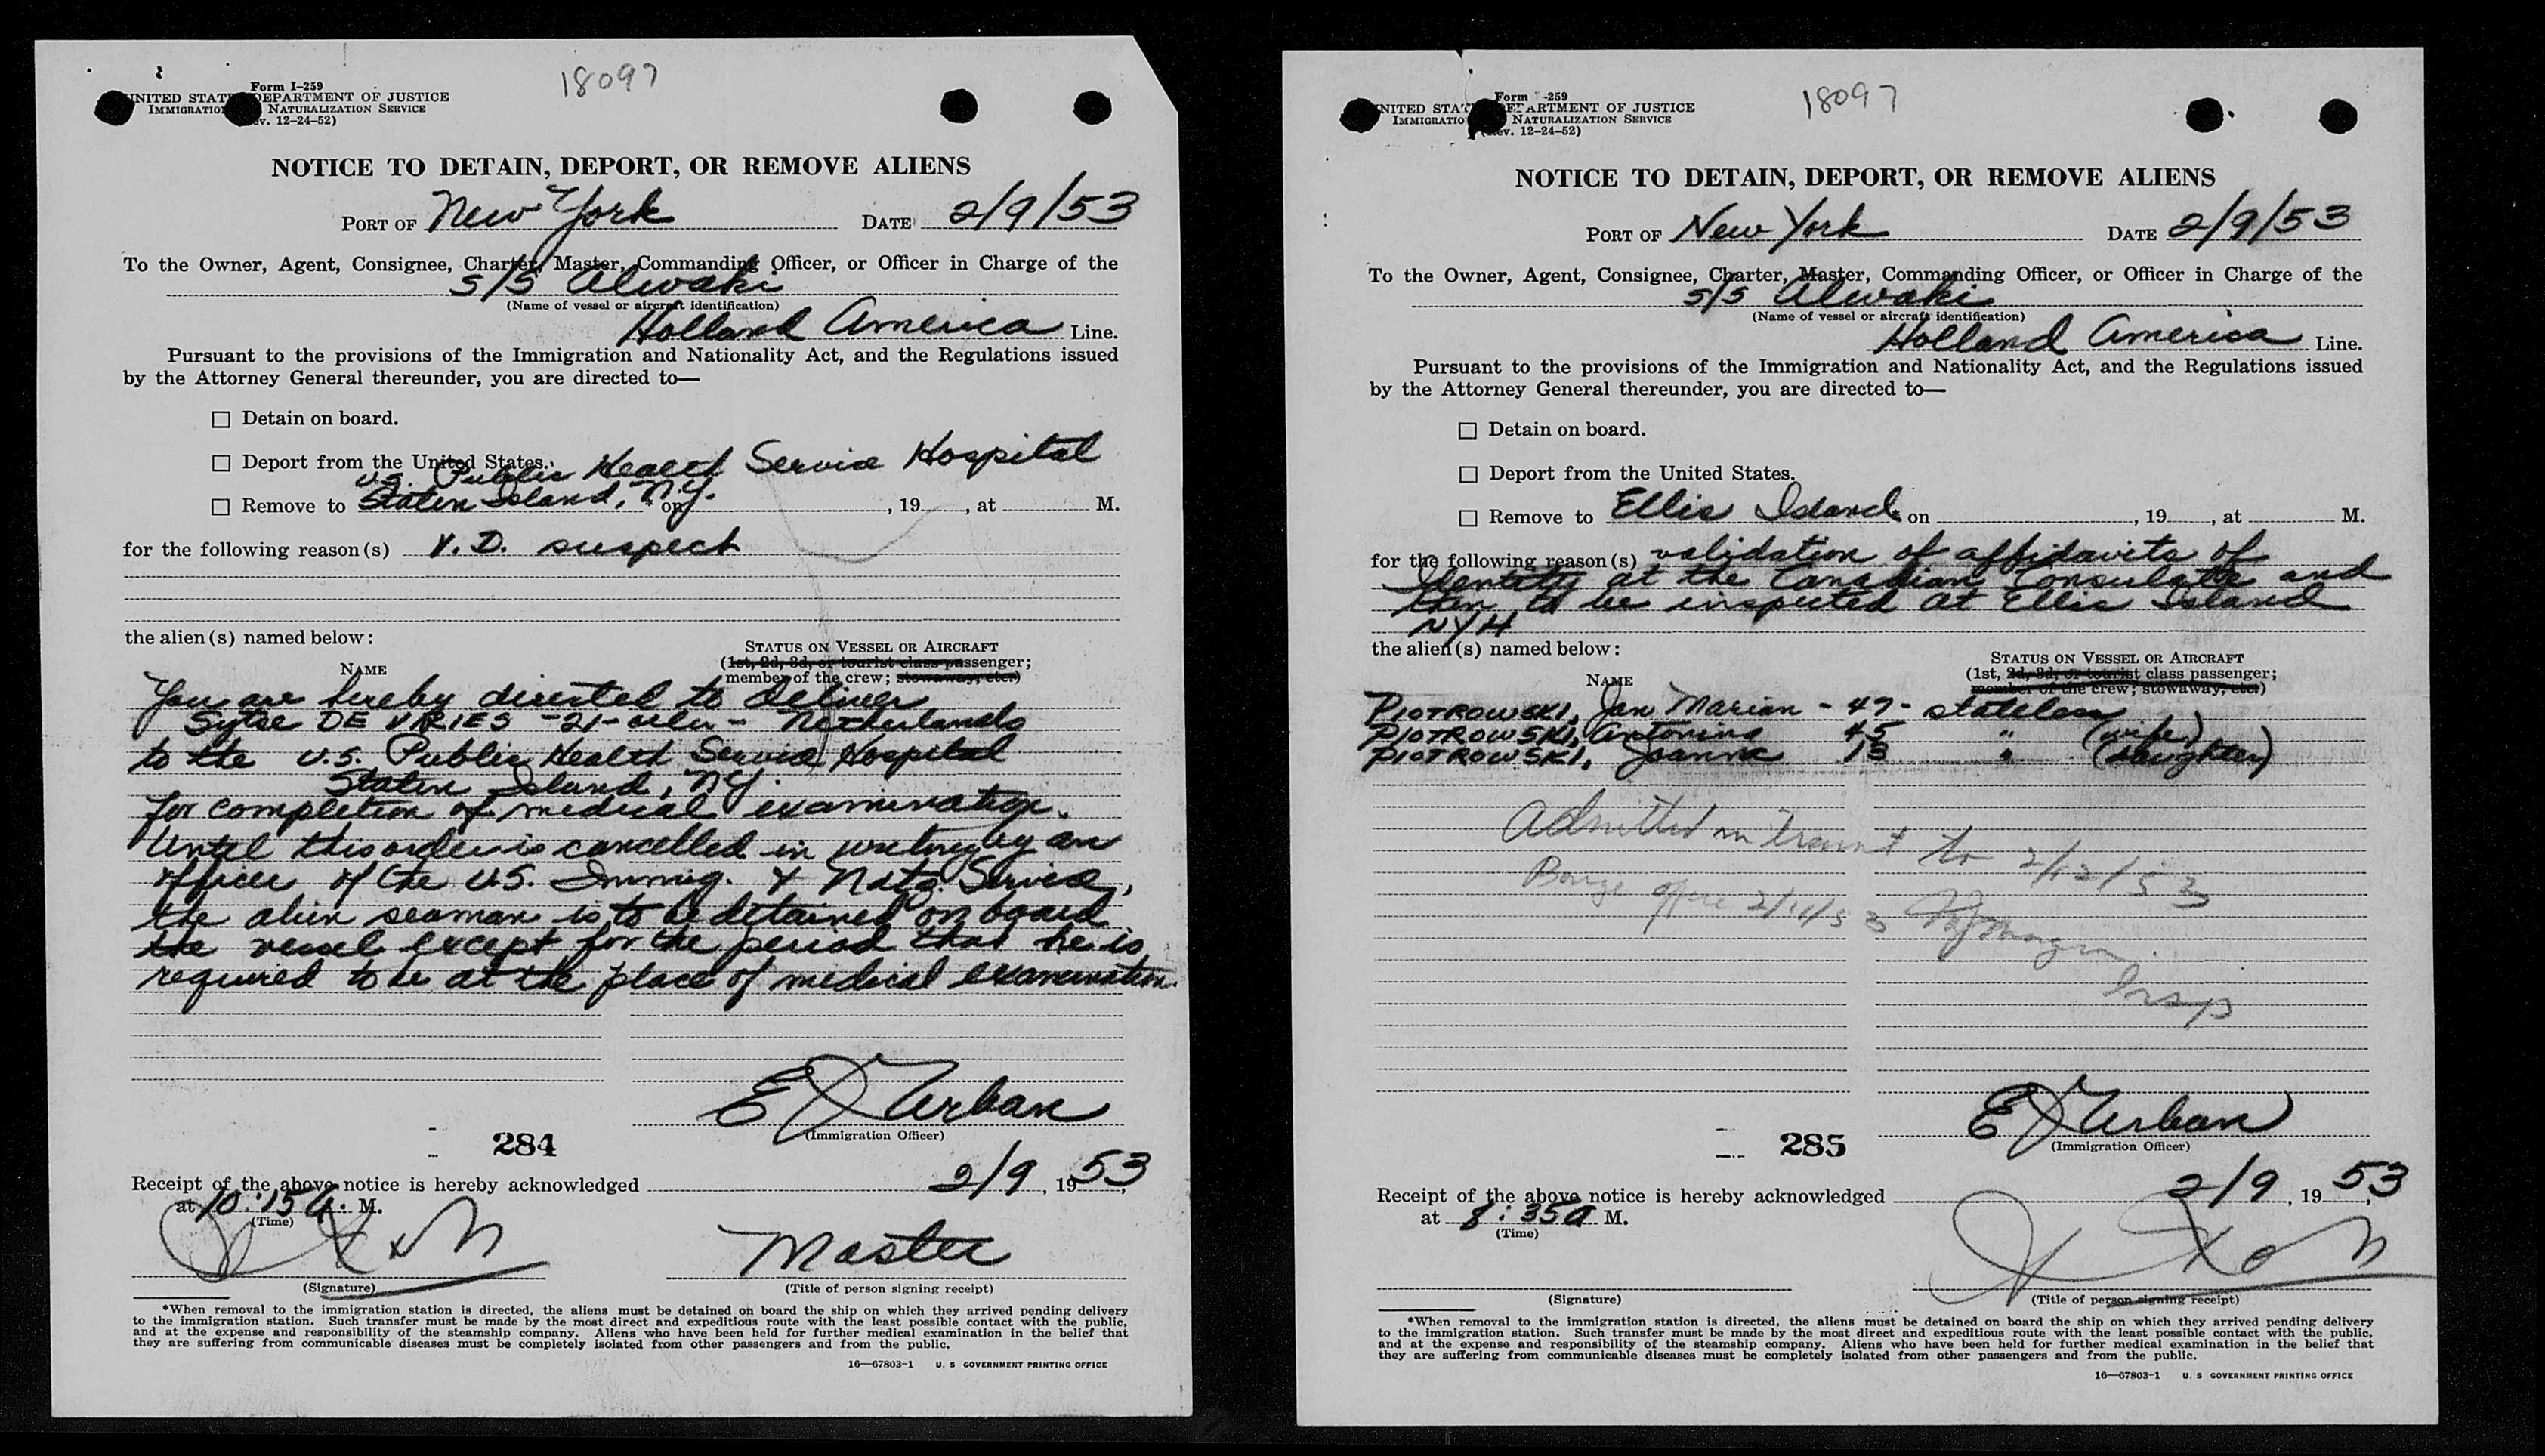 18097
Form I-259
UNITED STAT DEPARTMENT OF JUSTICE
IMMIGRATIO NATURALIZATION SERVICE
ev. 12-24-52)
NOTICE TO DETAIN, DEPORT, OR REMOVE ALIENS
PORT OF New York DATE 2/9/53
To the Owner, Agent, Consignee, Charter, Master, Commanding Officer, or Officer in Charge of the
S/S Alwaki
(Name of vessel or aircraft identification)
Holland America Line.
Pursuant to the provisions of the Immigration and Nationality Act, and the Regulations issued
by the Attorney General thereunder, you are directed to—
☐ Detain on board.
☐ Deport from the United States.
U.S. Public Health Service Hospital
☐ Remove to Staten Island, N.Y. * on , 19 , at M.
for the following reason(s) V.D. suspect
the alien(s) named below:
NAME
STATUS ON VESSEL OR AIRCRAFT
(1st, 2d, 3d, or tourist class passenger;
member of the crew; stowaway, etc.)
You are hereby directed to deliver
Sytse DE VRIES -21- Netherlands
to the U.S. Public Health Service Hospital
Staten Island, NY.
for completion of medical examination.
Until this order is cancelled in writing by an
officer of the U.S. Immig. & Natz. Service,
the alien seaman is to be detained on board
the vessel except for the period that he is
required to be at the place of medical examination.
E J Urban
(Immigration Officer)
284
Receipt of the above notice is hereby acknowledged 2/9, 1953,
at 10:15 A. M.
(Time)
Master
(Signature)
(Title of person signing receipt)
*When removal to the immigration station is directed, the aliens must be detained on board the ship on which they arrived pending delivery
to the immigration station. Such transfer must be made by the most direct and expeditious route with the least possible contact with the public,
and at the expense and responsibility of the steamship company. Aliens who have been held for further medical examination in the belief that
they are suffering from communicable diseases must be completely isolated from other passengers and from the public.
16—67803-1 U. S GOVERNMENT PRINTING OFFICE
18097
Form -259
NITED STA DEPARTMENT OF JUSTICE
IMMIGRATIO NATURALIZATION SERVICE
(Rev. 12-24-52)
NOTICE TO DETAIN, DEPORT, OR REMOVE ALIENS
PORT OF New York DATE 2/9/53
To the Owner, Agent, Consignee, Charter, Master, Commanding Officer, or Officer in Charge of the
S/S Alwaki
(Name of vessel or aircraft identification)
Holland America Line.
Pursuant to the provisions of the Immigration and Nationality Act, and the Regulations issued
by the Attorney General thereunder, you are directed to—
☐ Detain on board.
☐ Deport from the United States.
☐ Remove to Ellis Island on , 19 , at M.
for the following reason(s) validation of affidavits of
Identity at the Canadian Consulate and
then to be inspected at Ellis Island
NYH
the alien(s) named below:
NAME
STATUS ON VESSEL OR AIRCRAFT
(1st, 2d, 3d, or tourist class passenger;
member of the crew; stowaway, etc.)
PIOTROWSKI, Jan Marian - 47 - stateless
PIOTROWSKI, Antonina 45 " (wife)
PIOTROWSKI, Joanna 13 " (daughter)
Admitted in Transit to 2/12/53
Barge office 2/11/53
Insp
E J Urban
(Immigration Officer)
285
Receipt of the above notice is hereby acknowledged 2/9, 1953,
at 8:35 a M.
(Time)
(Signature)
(Title of person signing receipt)
*When removal to the immigration station is directed, the aliens must be detained on board the ship on which they arrived pending delivery
to the immigration station. Such transfer must be made by the most direct and expeditious route with the least possible contact with the public,
and at the expense and responsibility of the steamship company. Aliens who have been held for further medical examination in the belief that
they are suffering from communicable diseases must be completely isolated from other passengers and from the public.
16—67803-1 U. S GOVERNMENT PRINTING OFFICE